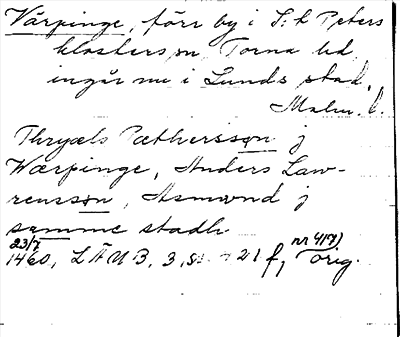 Värpinge, förr by i S:t Peters
klosters sn, Torna hd
ingår nu i Lunds stad.
Malm. l.
Thryæls Pæthersson j
Wærpinge, Anders Law-
rensson, Asmund j
samme stadh
23/7 1460, LÄUB, 3, s. 21 f, nr 4(7) orig.